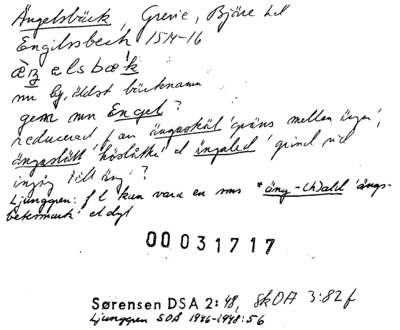 Ängelsbäck, Grevie, Bjäre hd
Engilssbech 15M-16
æŋelsbæ'k
nu bg, äldst bäcknamn
gem mn Engel?
reducerad f av ängaskäl 'gräns mellan ängar',
ängaslätt 'höslåtter' el ängaled 'grind vid
ingång till äng'?
Ljunggren: f l kan vara en sms *äng-(h)ald 'ängs-
betesmark' el dyl
00031717
Sørensen DSA 2:48, SkOA 3:82f
Ljunggren SOÅ 1946-1948:56